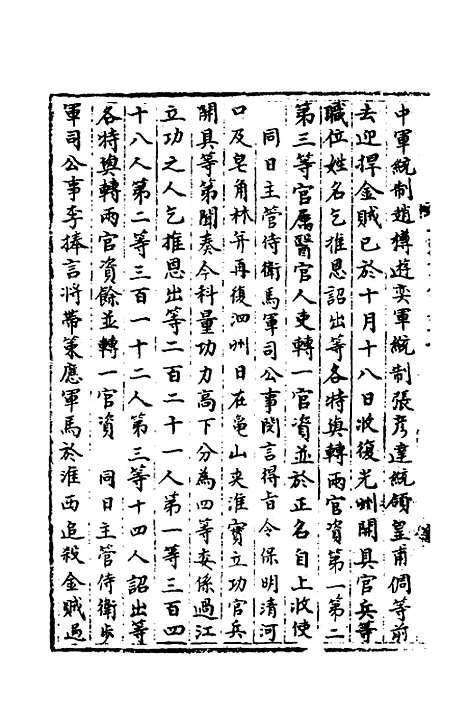 中軍統制趙樽遊奕軍統制張彥達統領皇甫倜等前
去迎捍金賊已於十月十八日收復光州開具官兵等
職位姓名乞推恩詔出等各特與轉兩官資第一第二
第三等官屬醫官人吏轉一官資並於正名目上收使
同日主管侍衛馬軍司公事閔言得旨令保明清河
口及皂角林并再復泗州日在龜山夾淮寶立功官兵
開具等第聞奏今科量功力高下分為四等委係過江
立功之人乞推恩出等二百二十一人第一等三百四
十八人第二等三百一十二人第三等十四人詔出等
各特與轉兩官資餘並轉一官資 同日主管侍衛步
軍司公事李捧言將帶策應軍馬於淮西追殺金賊過